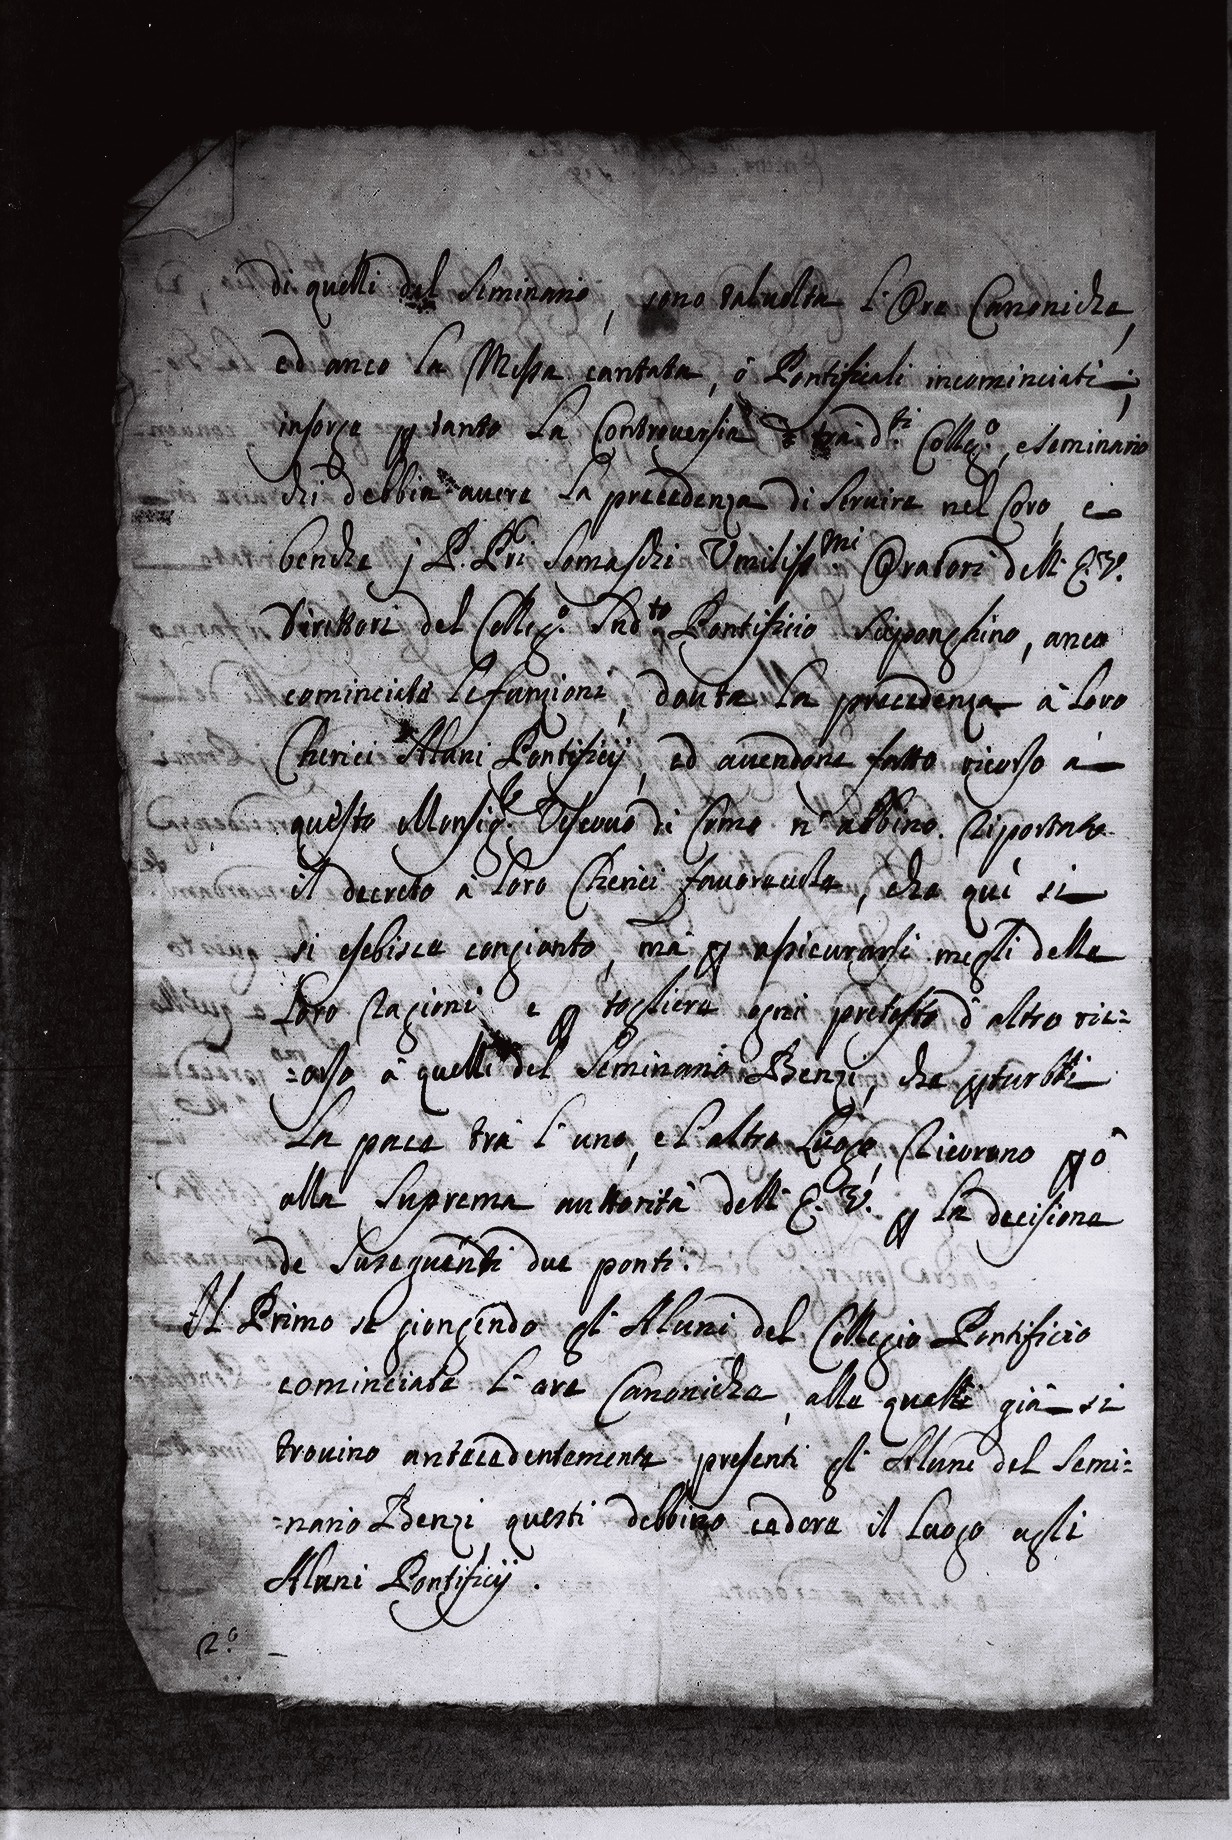 di quelli del Seminario, sono taluolta l'Ore Canoniche,
ed anco la Messa cantata, ò Pontificali incominciati;
insorge p tanto la Controuersia trà d.ti Colleg.o, e Seminario
chi debbia auere la precedenza di seruire nel Coro, e
benche j P. Pri Somaschi Vmiliss.mi Oratori dell' E. V.
Direttori del Colleg.o Sud.to Pontificio, anco
cominciate le funzioni, douta la precedenza à loro
Cherici Aluni Pontificij, ed auendone fatto ricorso à
questo Monsig.re Vescouo di Como n' abbino riportato
il decreto à loro Cherici fauoreuole, che qui si
si esebisce congionto, mà p assicurarsi megli delle
loro ragioni e p togliere ogni pretesto d' altro ric=
=orso à quelli del Seminario Benzi, che pturbbi
la pace trà l' uno, e l' altro Luogo, ricorono pò
alla Suprema auttorità dell' E. V. p la decisione
de suseguenti due ponti.
Il Primo se giongendo gl' Aluni del Collegio Pontificio
cominciate l' ore Canoniche, alle quelli già si
trouino antecedentemente presenti gl' Aluni del Semi=
=nario Benzi, questi debbino cedere il luogo agli
Aluni Pontificij.
2.o